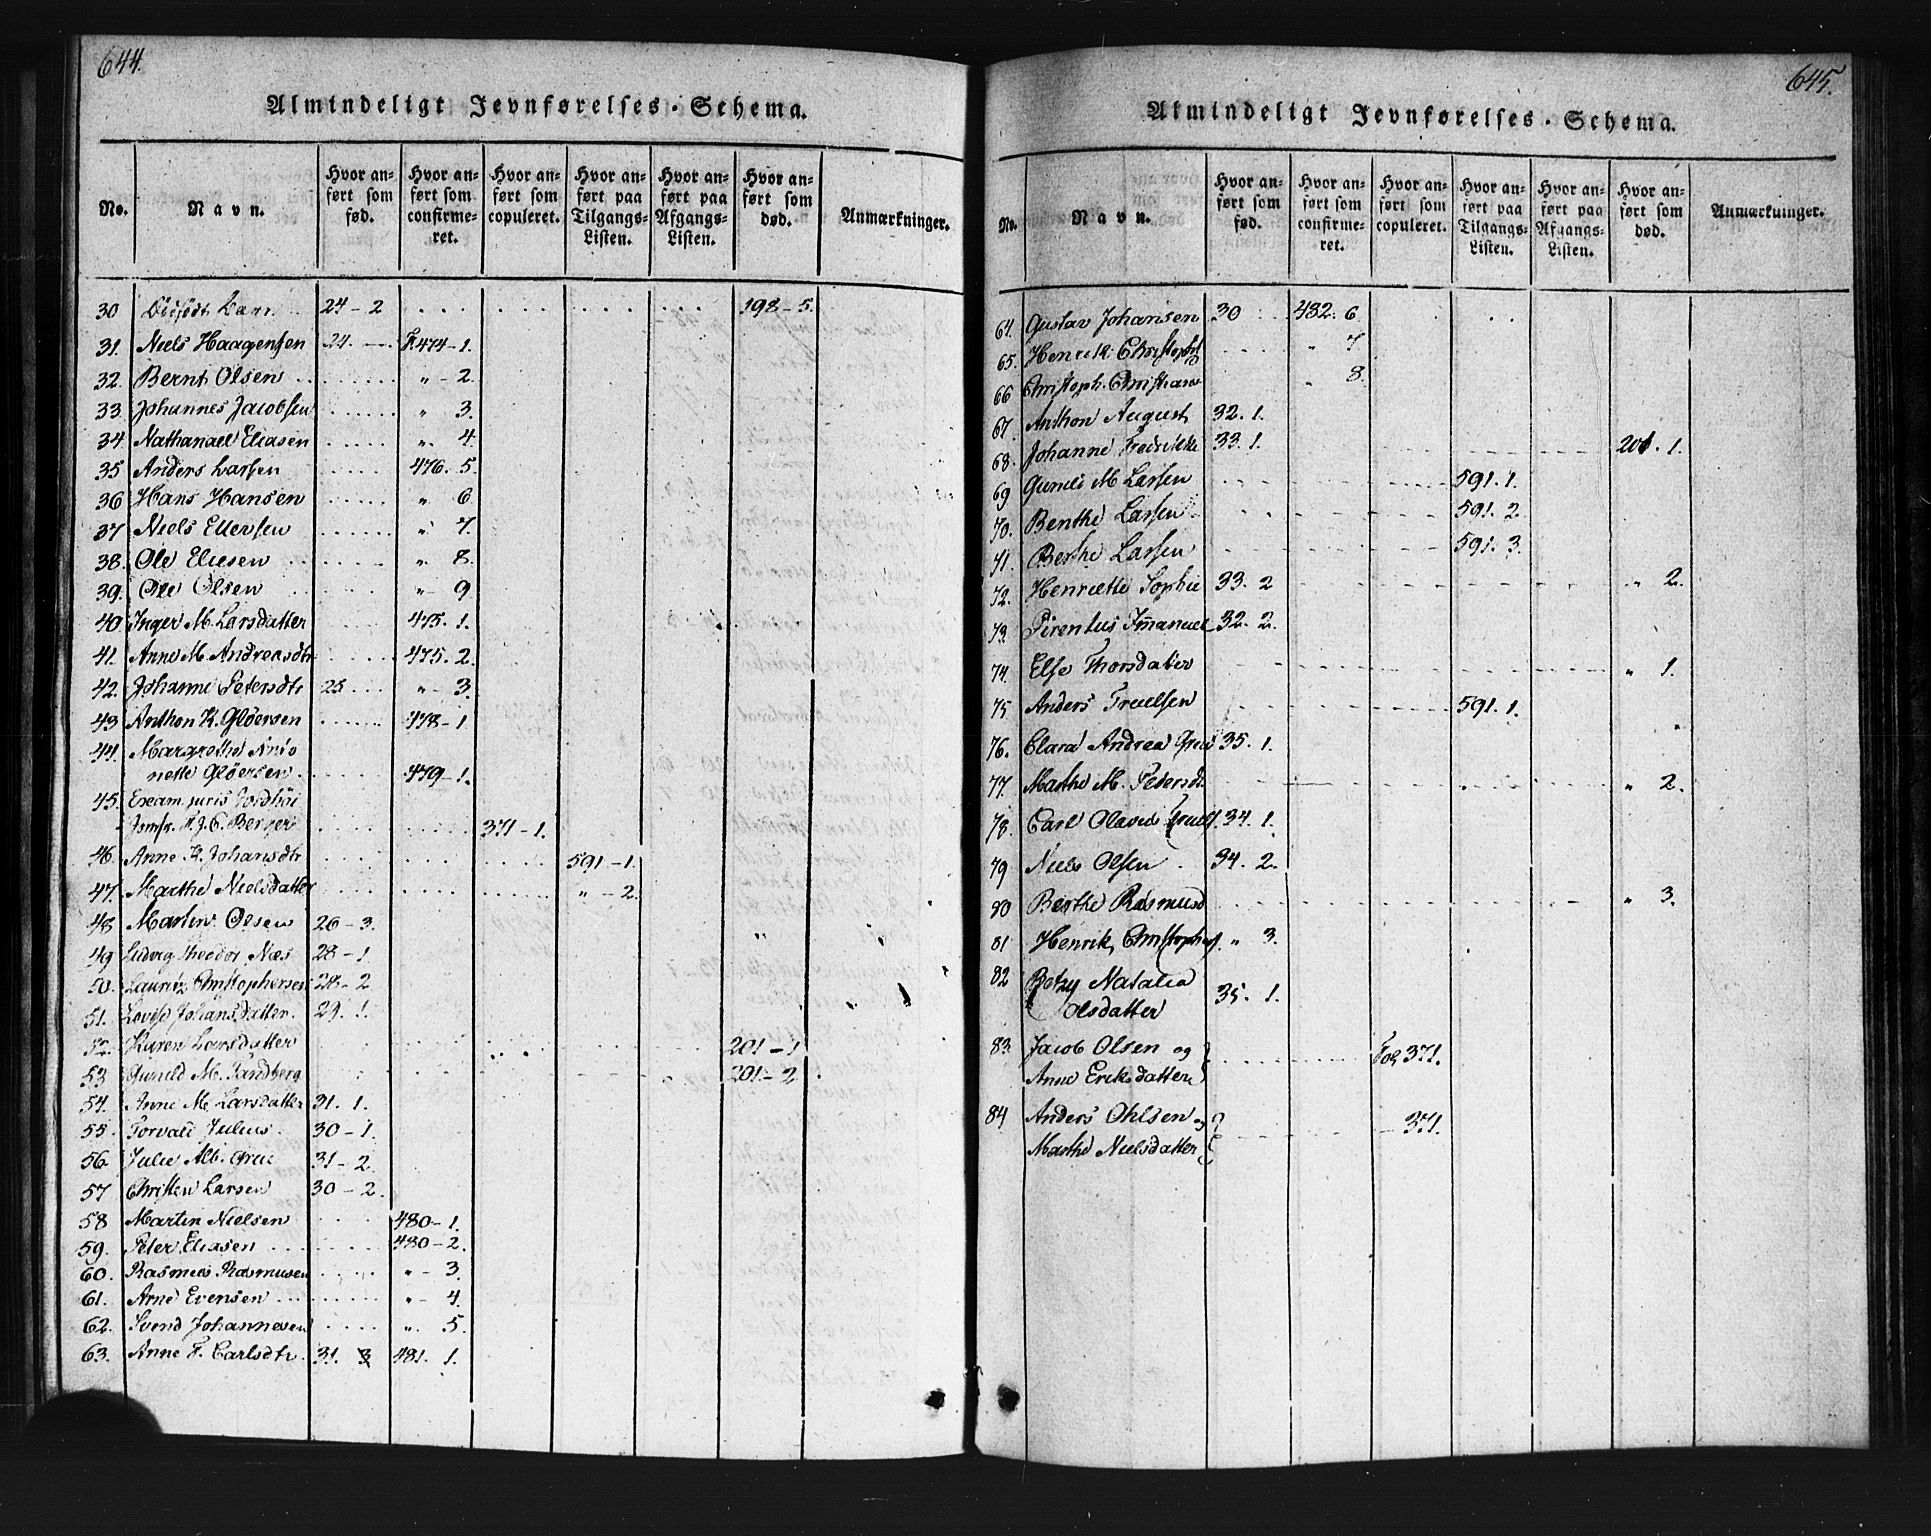 644.
Almindeligt Jevnførelses-Schema.
No.
Navn.
Hvor anført som fød.
Hvor anført som confirmeret.
Hvor anført som copuleret.
Hvor anført paa Tilgangs-Listen.
Hvor anført paa Afgangs-Listen.
Hvor anført som død.
Anmærkninger.
30 Dødfødt Barn 24-2 198-5.
31. Niels Haagensen 24. F. 474-1.
32. Bernt Olsen " - 2.
33. Johannes Jacobsen " 3.
34. Nathanael Eliasen " 4.
35 Anders Larsen 476. 5.
36 Hans Hansen " 6
37 Niels Ellersen " 7.
38. Ole Eliesen " 8.
39. Ole Olsen " 9
40. Inger M. Larsdatter 475. 1.
41. Anne M. Andreasdtr 475. 2.
42. Johanne Petersdtr 25 " - 3.
43. Anthon K. Gløersen 478-1
44. Margrethe
nette Gløersen. 479-1.
45. Exam. juris
Jomfr. Berger 371-1.
46. Anne K. Johansdtr 591-1.
47. Marthe Nielsdatter " - 2.
48 Martin Olsen 26-3.
49 Ludvig Theodor Næs 28-1
50. Lauritz Christophersen 28-2
51. Lovise Johansdatter. 29. 1.
52. Karen Larsdatter 201-1
53. Gunild M. Sandberg 201-2
54. Anne M. Larsdatter 31. 1.
55. Torvald Julius. 30-1.
56. Julie Alb. Grue 31-2.
57 Christen Larsen 30-2.
58 Martin Nielsen 480-1.
59. Peter Eliasen 480-2.
60. Rasmus Rasmusen " - 3.
61. Arne Evensen " - 4.
62. Svend Johannesen " 5.
63. Anne F. Carlsdtr. 31. 3 481. 1.
645.
Almindeligt Jevnførelses-Schema.
No.
Navn.
Hvor anført som fød.
Hvor anført som confirmeret.
Hvor anført som copuleret.
Hvor anført paa Tilgangs-Listen.
Hvor anført paa Afgangs-Listen.
Hvor anført som død.
Anmærkninger.
64. Gustav Johansen 30 482. 6
65. Henrik Christophs " 7
66 Christoph. Christians " 8.
67. Anthon August 32. 1.
68. Johanne Fredrikke 33. 1. 201. 1.
69 Gunild M Larsen 591. 1.
70. Benthe Larsen 591. 2.
71. Berthe Larsen 591. 3.
72. Henriette Sophie 33. 2 " 2.
73. Imanuel 32. 2.
74. Else Thorsdatter " 1.
75 Anders Truelsen 591. 1.
76. Clara Andrea Grue 35. 1.
77. Marthe M. Pedersdt. " 2.
78. Carl Olavus Truels. 34. 1.
79 Niels Olsen 34. 2.
80 Berthe Rasmusd " 3.
81 Henrik Christophers. " 3.
82 Betzy Natalia
Olsdatter 35. 1.
83. Jacob Olsen og
Anne Eriksdatter Fol 371.
84 Anders Ohlsen og
Marthe Nielsdatter - 371.